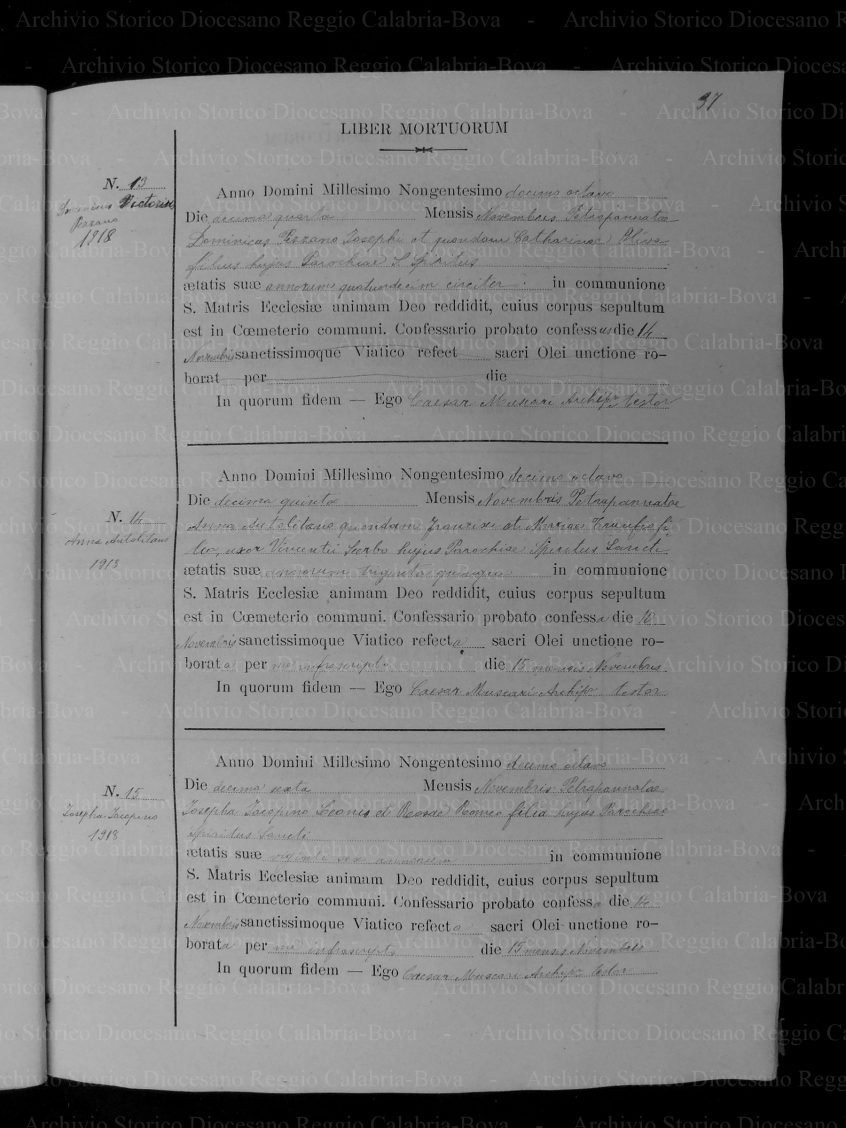 37
LIBER MORTUORUM
N. 13
Pezzano
1918
Anno Domini Millesimo Nongentesimo decimo octavo
Die decima quarta Mensis Novembris Petrapannatae
Dominicus Pezzano Josephi et quondam Catharinae Oliva
filius hujus Parochiae S. Spiritus
ætatis suæ annorum quatuordecim circiter in communione
S. Matris Ecclesiæ animam Deo reddidit, cuius corpus sepultum
est in Cœmeterio communi. Confessario probato confessus die 14
Novembris sanctissimoque Viatico refect sacri Olei unctione ro-
borat per die
In quorum fidem — Ego Caesar Muscari Archipr testor
N. 14
Anna Autolitano
1918
Anno Domini Millesimo Nongentesimo decimo octavo
Die decima quinta Mensis Novembris Petrapannatae
Anna Autolitano quondam et Mariae fi
lia, uxor Vincentii Serbo hujus Parochiae Spiritus Sancti
ætatis suæ annorum quinque in communione
S. Matris Ecclesiæ animam Deo reddidit, cuius corpus sepultum
est in Cœmeterio communi. Confessario probato confessa die
Novembris sanctissimoque Viatico refecta sacri Olei unctione ro-
borata per me infrascripto die 15 mensis Novembris
In quorum fidem — Ego Caesar Muscari Archipr testor
N. 15
Josepha Jacopino
1918
Anno Domini Millesimo Nongentesimo decimo octavo
Die decima sexta Mensis Novembris Petrapannatae
Josepha Jacopino Leonis et Rosae Romeo filia hujus Parochiae
Spiritus Sancti
ætatis suæ viginti sex annorum in communione
S. Matris Ecclesiæ animam Deo reddidit, cuius corpus sepultum
est in Cœmeterio communi. Confessario probato confessa die 14
Novembris sanctissimoque Viatico refecta sacri Olei unctione ro-
borata per me infrascripto die 15 mensis Novembris
In quorum fidem — Ego Caesar Muscari Archipr testor